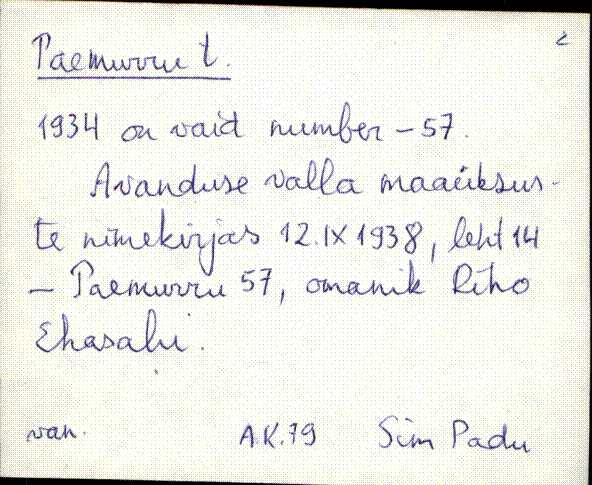 Paemurru t.
1934 on vaid number - 57.
Avanduse valla maaüksus-
te nimekirjas 12.IX 1938, leht 14
- Paemurru 57, omanik Riho
Ehasalu.
van. A.K.79 Siim Padu